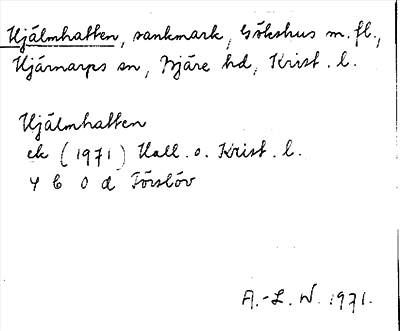 Hjälmhatten, sankmark, Gökshus m.fl.,
Hjärnarps sn, Bjäre hd, Krist. l.
Hjälmhatten
ek (1971) Hall. o. Krist. l.
4 C 0 d Förslöv
A.-L. W. 1971.